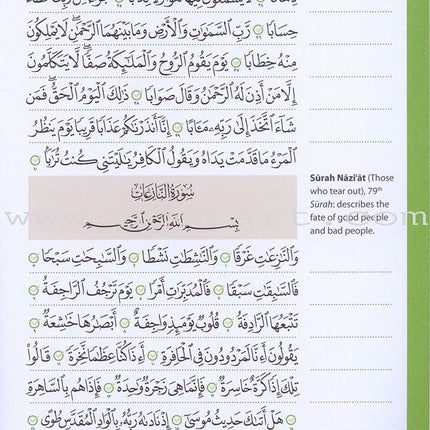 حِسَابًا رَّبِّ ٱلسَّمَـٰوَٰتِ وَٱلْأَرْضِ وَمَا بَيْنَهُمَا ٱلرَّحْمَـٰنِ ۖ لَا يَمْلِكُونَ
مِنْهُ خِطَابًا يَوْمَ يَقُومُ ٱلرُّوحُ وَٱلْمَلَـٰٓئِكَةُ صَفًّا ۖ لَّا يَتَكَلَّمُونَ
إِلَّا مَنْ أَذِنَ لَهُ ٱلرَّحْمَـٰنُ وَقَالَ صَوَابًا ذَٰلِكَ ٱلْيَوْمُ ٱلْحَقُّ ۖ فَمَن
شَآءَ ٱتَّخَذَ إِلَىٰ رَبِّهِۦ مَـَٔابًا إِنَّآ أَنذَرْنَـٰكُمْ عَذَابًا قَرِيبًا يَوْمَ يَنظُرُ
ٱلْمَرْءُ مَا قَدَّمَتْ يَدَاهُ وَيَقُولُ ٱلْكَافِرُ يَـٰلَيْتَنِى كُنتُ تُرَٰبًۢا
سُورَةُ النَّازِعَاتِ
بِسْمِ ٱللَّهِ ٱلرَّحْمَـٰنِ ٱلرَّحِيمِ
Sūrah Nāzi'āt (Those
who tear out), 79th
Sūrah: describes the
fate of good people
and bad people.
وَٱلنَّـٰزِعَـٰتِ غَرْقًا وَٱلنَّـٰشِطَـٰتِ نَشْطًا وَٱلسَّـٰبِحَـٰتِ سَبْحًا
فَٱلسَّـٰبِقَـٰتِ سَبْقًا فَٱلْمُدَبِّرَٰتِ أَمْرًا يَوْمَ تَرْجُفُ ٱلرَّاجِفَةُ
تَتْبَعُهَا ٱلرَّادِفَةُ قُلُوبٌ يَوْمَئِذٍ وَاجِفَةٌ أَبْصَـٰرُهَا خَـٰشِعَةٌ
يَقُولُونَ أَءِنَّا لَمَرْدُودُونَ فِى ٱلْحَافِرَةِ أَءِذَا كُنَّا عِظَـٰمًا نَّخِرَةً قَالُوا۟
تِلْكَ إِذًا كَرَّةٌ خَاسِرَةٌ فَإِنَّمَا هِىَ زَجْرَةٌ وَٰحِدَةٌ فَإِذَا هُم بِٱلسَّاهِرَةِ
هَلْ أَتَىٰكَ حَدِيثُ مُوسَىٰٓ إِذْ نَادَىٰهُ رَبُّهُۥ بِٱلْوَادِ ٱلْمُقَدَّسِ طُوًى